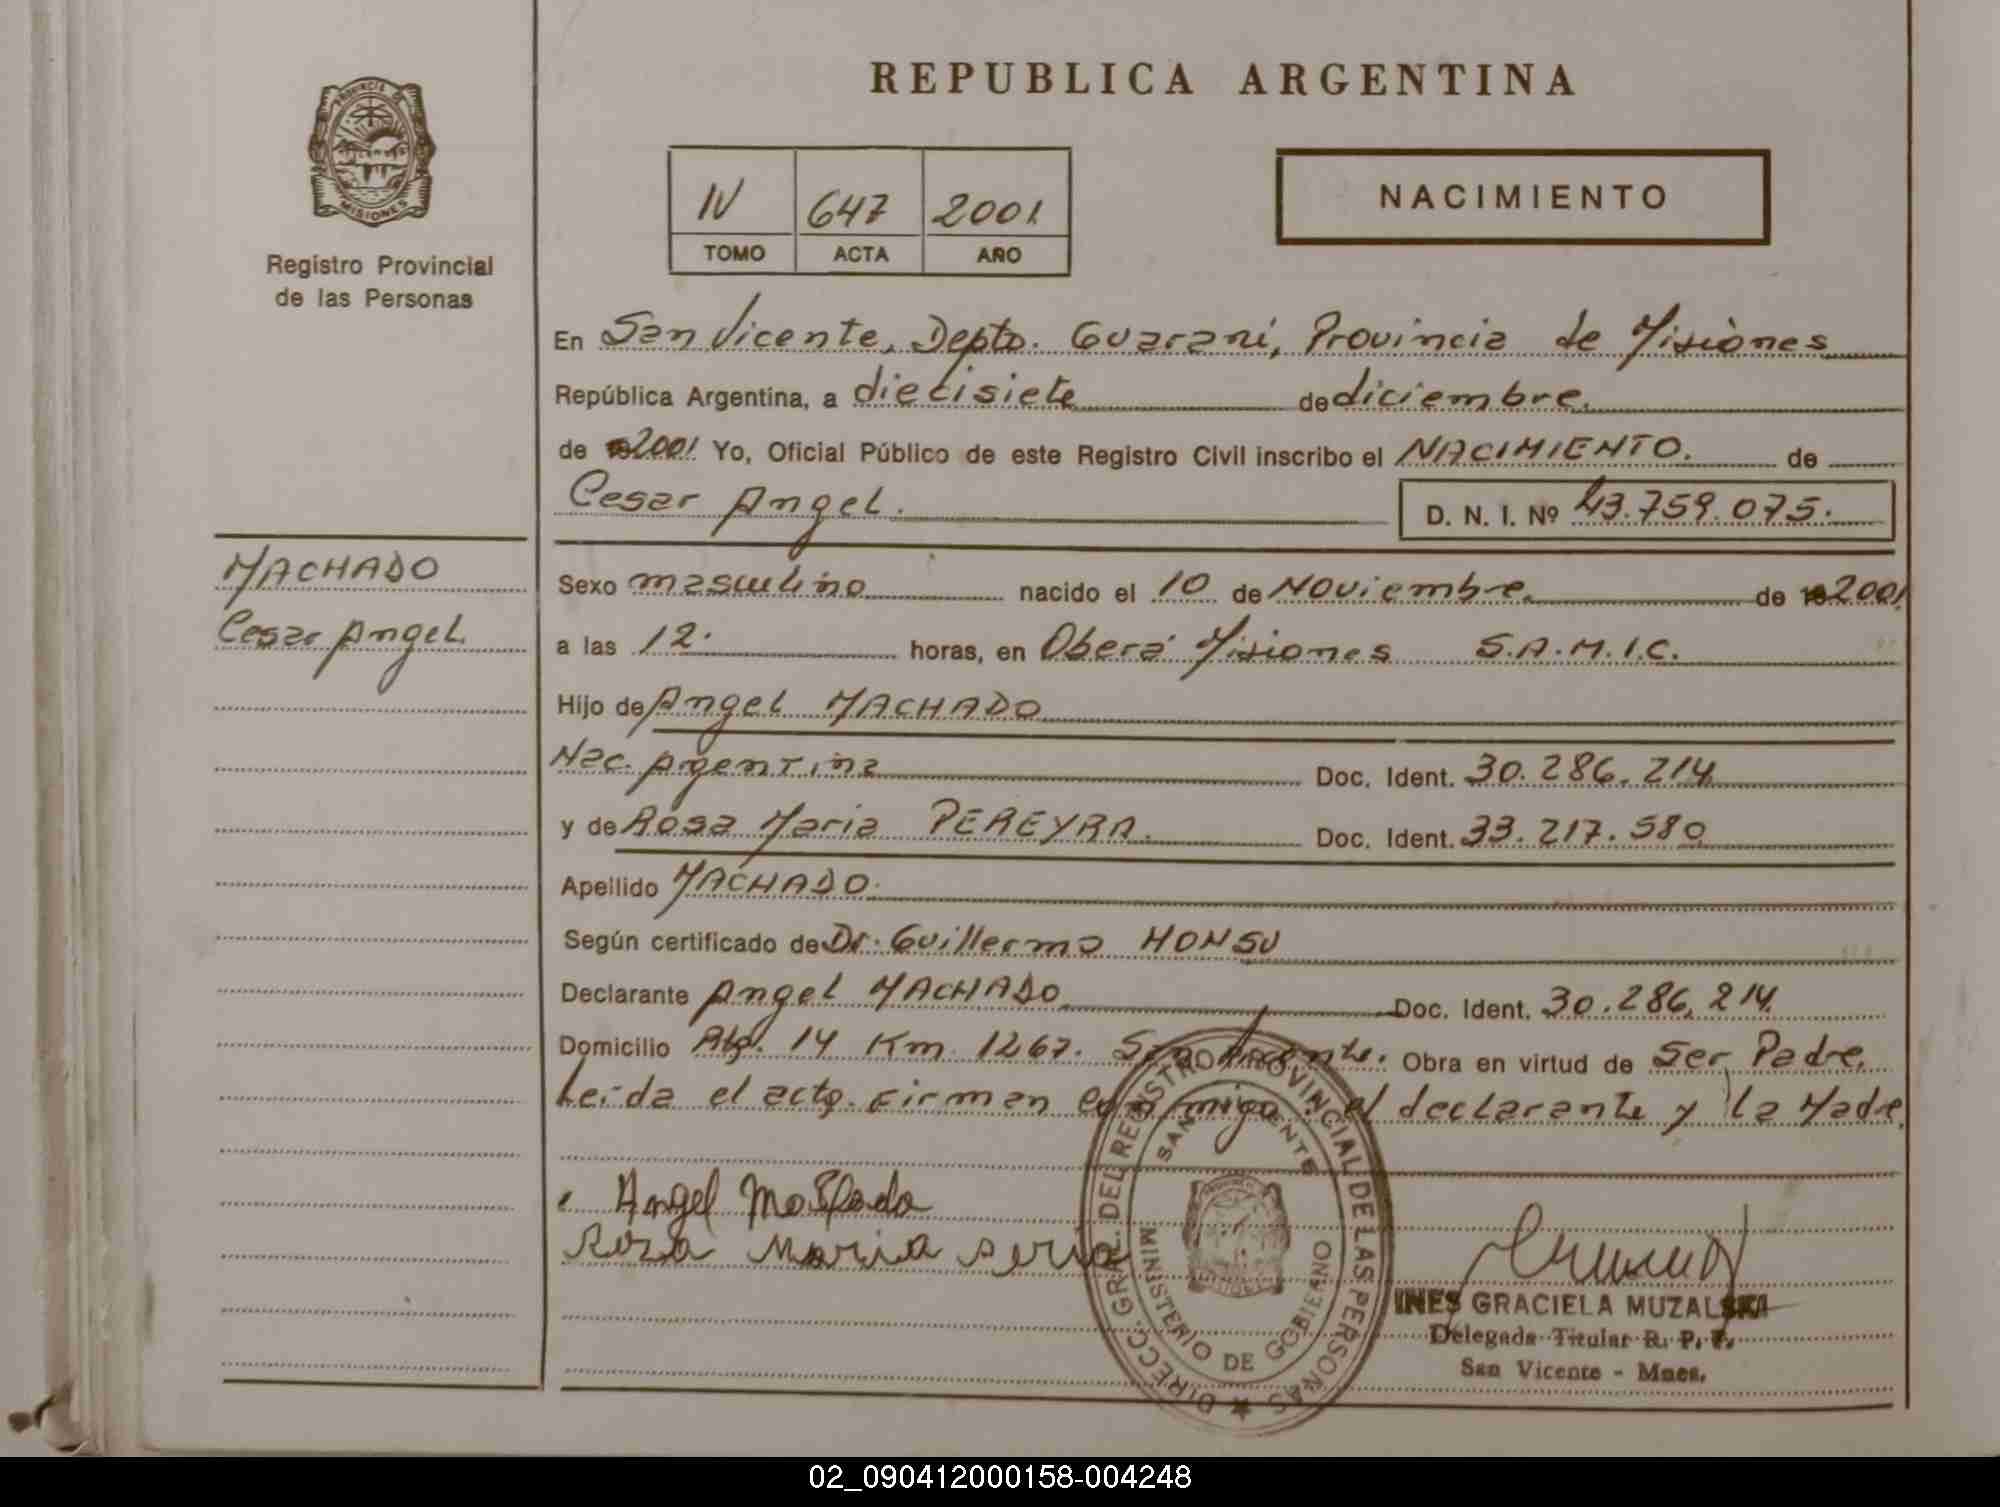 REPUBLICA ARGENTINA
PROVINCIA DE
MISIONES
Registro Provincial
de las Personas
IV 647 2001
TOMO ACTA AÑO
NACIMIENTO
En San Vicente, Depto. Guaraní, Provincia de Misiones
República Argentina, a diecisiete de diciembre.
de 2001 Yo, Oficial Público de este Registro Civil inscribo el NACIMIENTO. de
Cesar Angel. D. N. I. Nº 43.759.075.
MACHADO
Cesar Angel.
Sexo masculino nacido el 10 de Noviembre. de 2001.
a las 12. horas, en Oberá Misiones S.A.M.I.C.
Hijo de Angel MACHADO
Nac. Agentina Doc. Ident. 30.286.214
y de Rosa Maria PEREYRA. Doc. Ident. 33.217.580
Apellido MACHADO.
Según certificado de Dr. Guillermo HONSU
Declarante Angel MACHADO Doc. Ident. 30.286.214.
Domicilio 14 Km 1267. San Vicente. Obra en virtud de Ser Padre.
Leída el acta. Firman conmigo: el declarante y la Madre.
Angel
Roza Maria
DIRECC. GRAL. DEL REGISTRO PROVINCIAL DE LAS PERSONAS
SAN VICENTE
MINISTERIO DE GOBIERNO
INES GRACIELA MUZALSKI
Delegada Titular R. P. P.
San Vicente - Mnes.
02_090412000158-004248